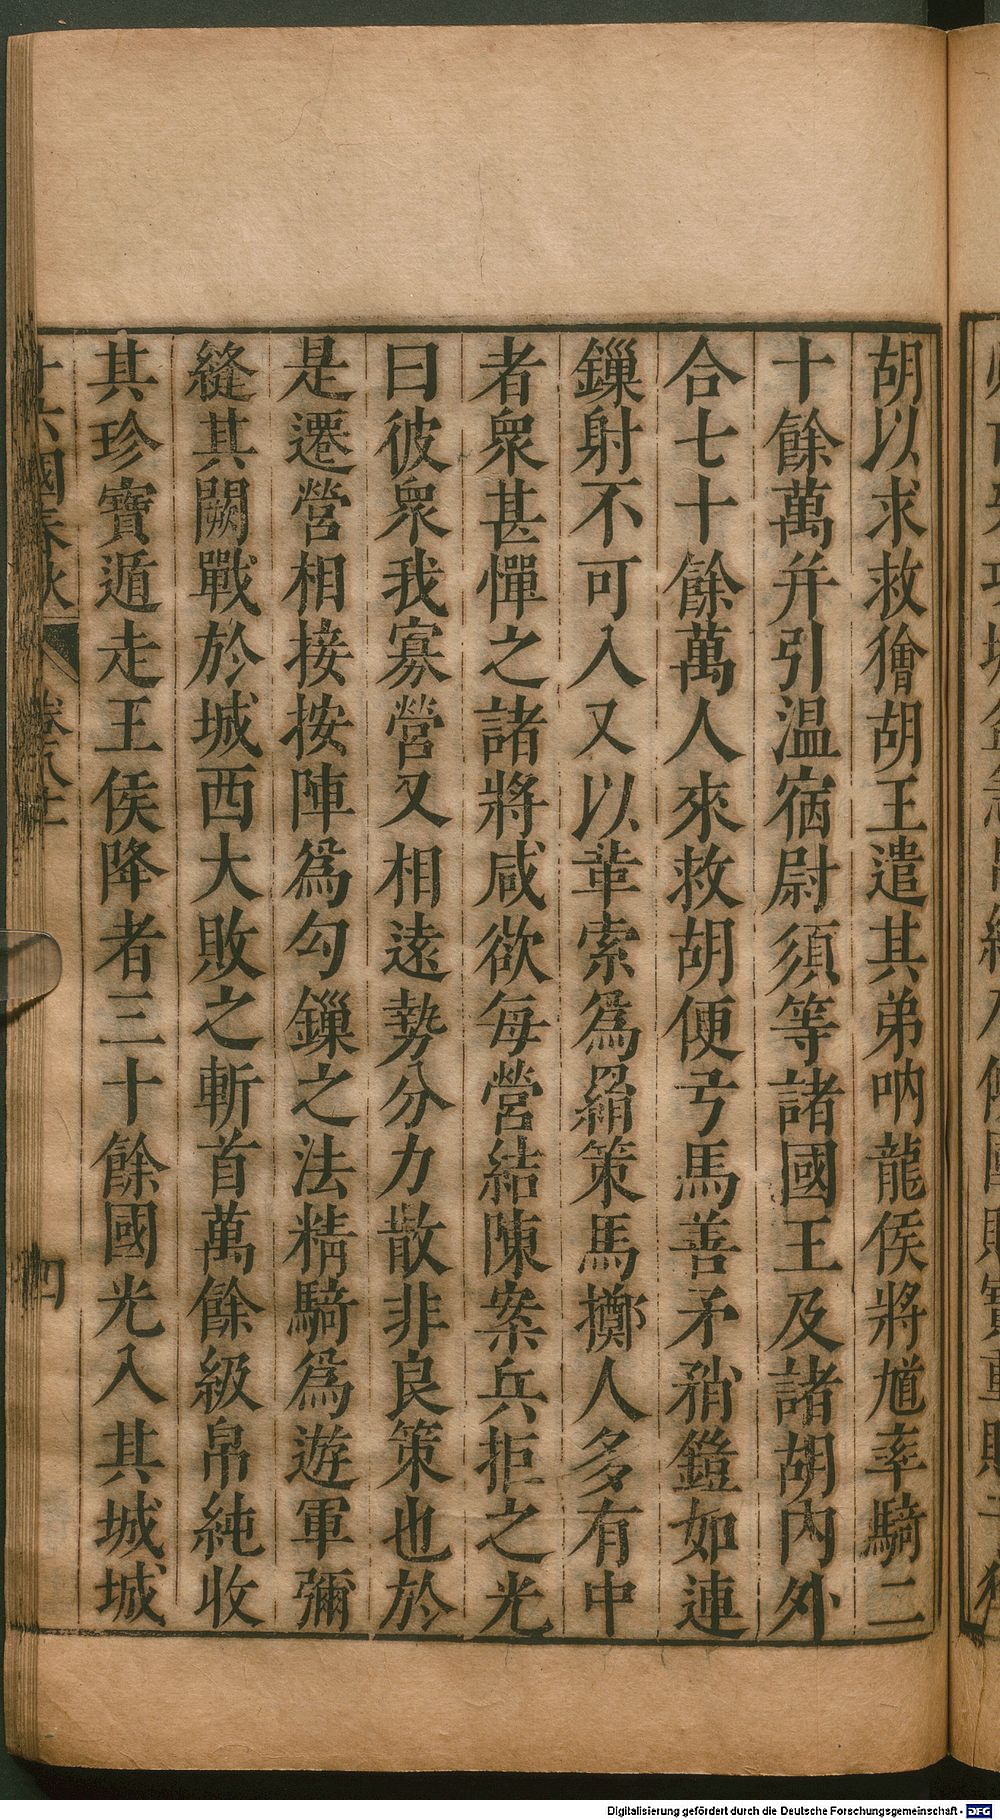 胡以求救獪胡王遣其弟吶龍侯將馗率騎二
十餘萬并引溫宿尉須等諸國王及諸胡內外
合七十餘萬人來救胡便弓馬善矛矟鎧如連
鏁射不可入又以革索為羂策馬擲人多有中
者衆甚憚之諸將咸欲每營結陳案兵拒之光
曰彼衆我寡營又相遠勢分力散非良策也於
是遷營相接按陣為勾鏁之法精騎為遊軍彌
縫其闕戰於城西大敗之斬首萬餘級帛純收
其珍寶遁走王侯降者三十餘國光入其城城
十六國春秋
卷八十
四
Digitalisierung gefördert durch die Deutsche Forschungsgemeinschaft - DFG